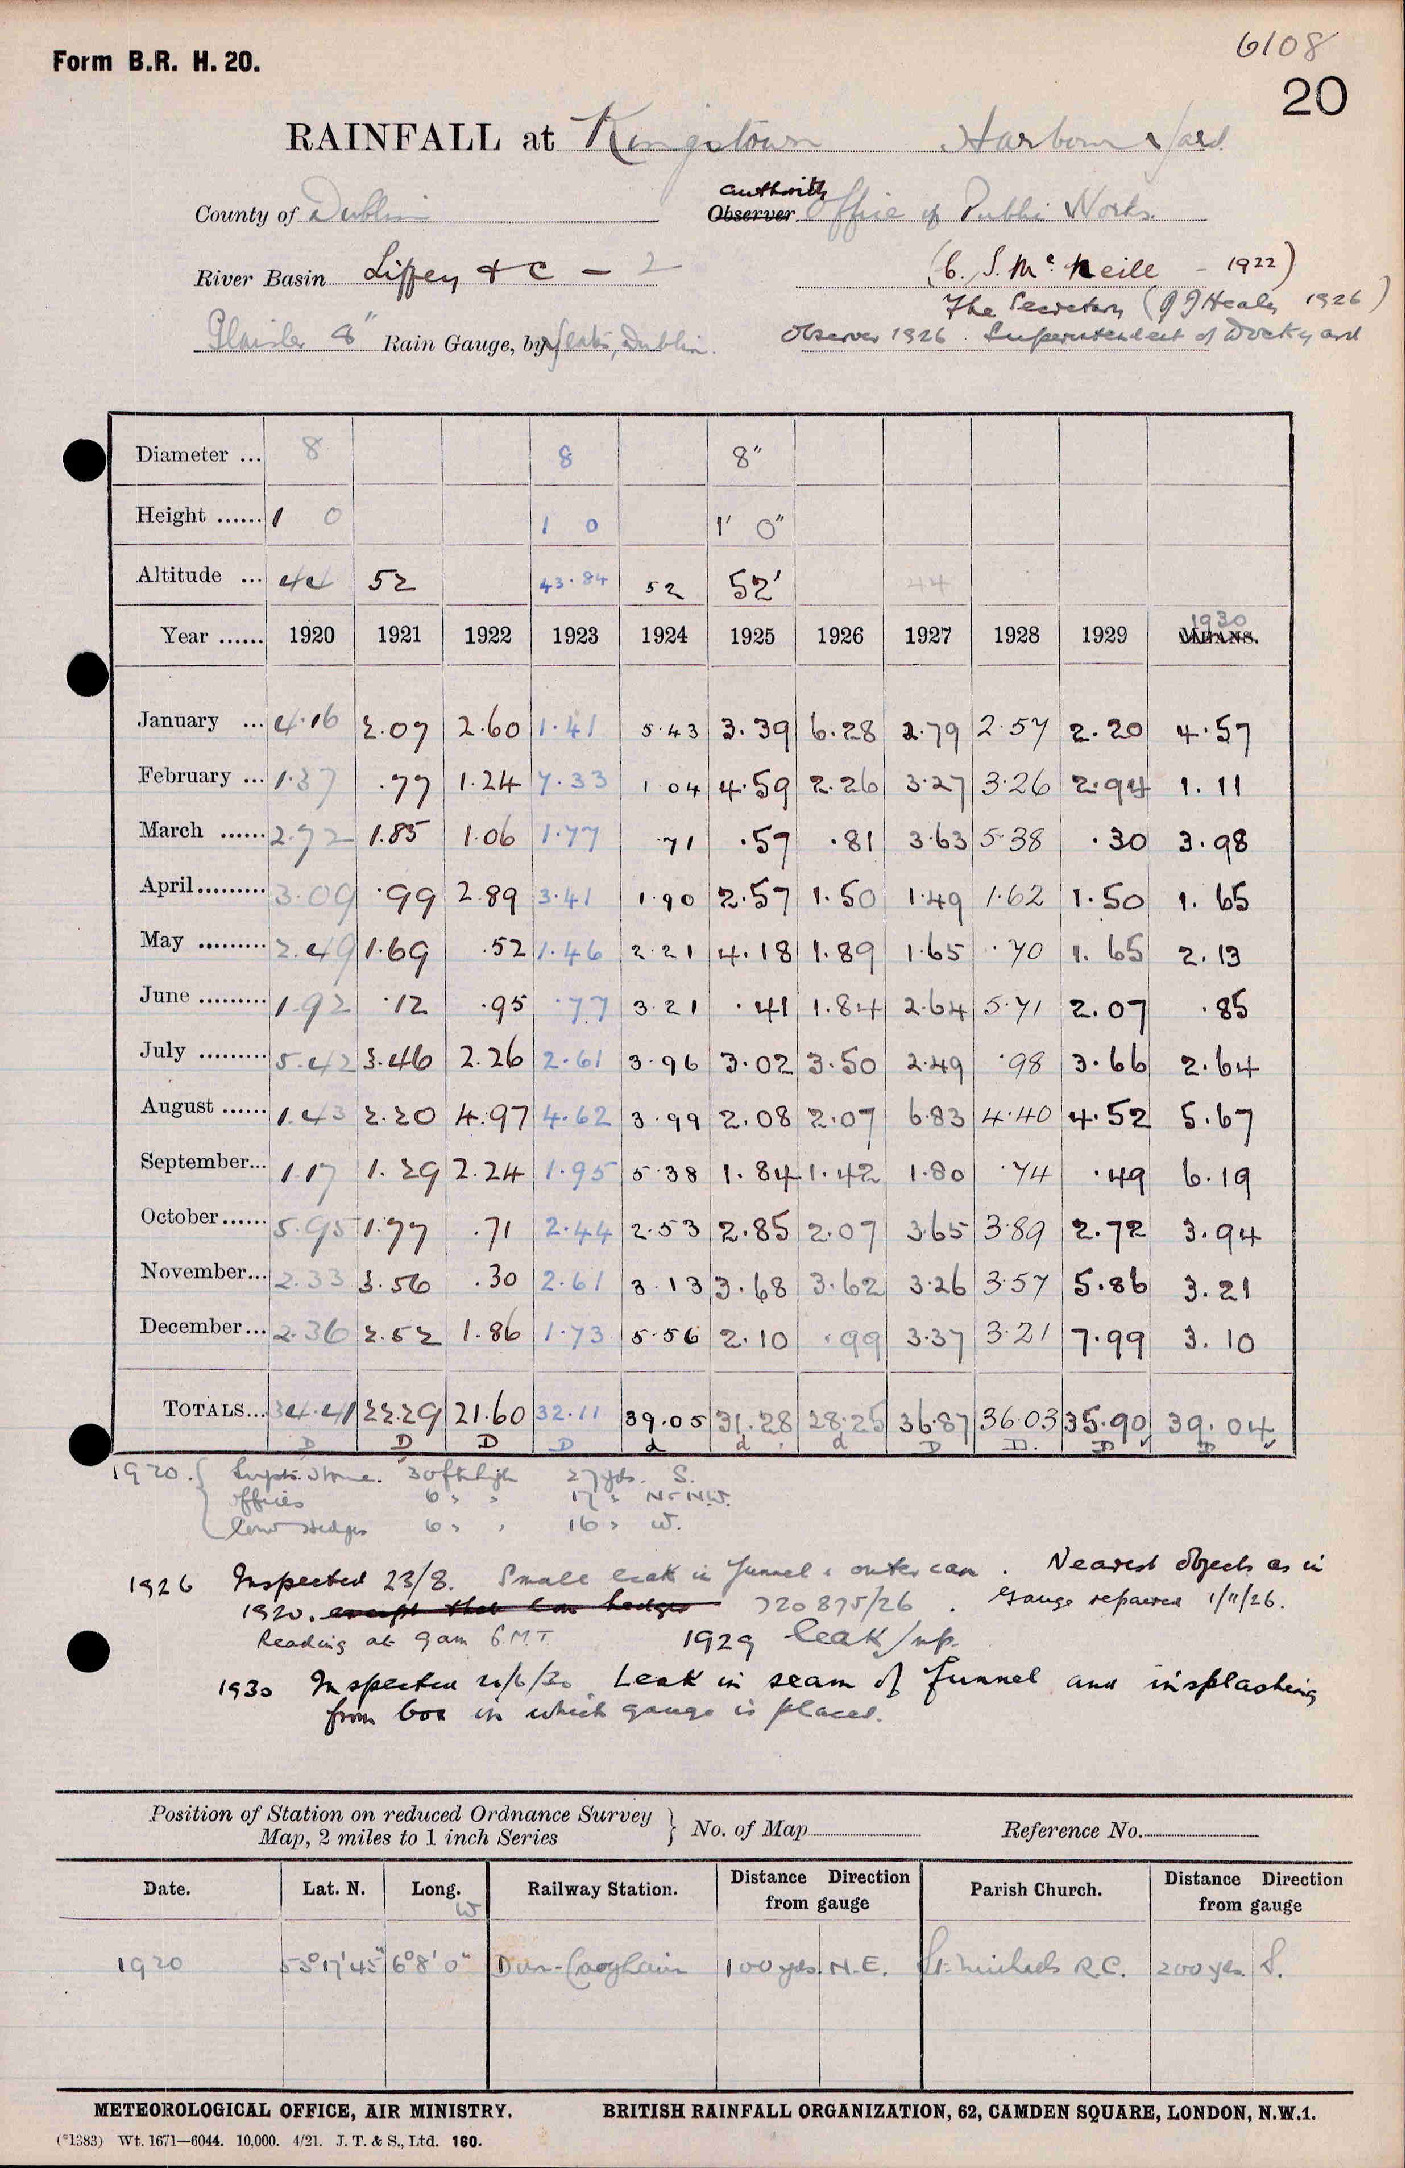 6108
Form B.R. H. 20.
20
RAINFALL at Kingstown Harbour Yard
authority
County of Dublin Observer Office of Public Works.
River Basin Liffey & C - 2 (C. S. McNeill - 1922)
The Secretary (J J Healy 1926)
8" Rain Gauge, by Yeates, Dublin. Observer 1926. Superintendent of Dockyard
Diameter ... 8 8 8"
Height ...... 1 0 1 0 1' 0"
Altitude ... 44 52 43.84 52 52' 44
1930
Year ...... 1920 1921 1922 1923 1924 1925 1926 1927 1928 1929 MEANS.
January ... 4.16 2.07 2.60 1.41 5.43 3.39 6.28 2.79 2.57 2.20 4.57
February ... 1.37 .77 1.24 7.33 1.04 4.59 2.26 3.27 3.26 2.94 1.11
March ...... 2.72 1.85 1.06 1.77 .71 .57 .81 3.63 5.38 .30 3.98
April......... 3.09 .99 2.89 3.41 1.90 2.57 1.50 1.49 1.62 1.50 1.65
May ......... 2.49 1.69 .52 1.46 2.21 4.18 1.89 1.65 .70 1.65 2.13
June ......... 1.92 .12 .95 .77 3.21 .41 1.84 2.64 5.71 2.07 .85
July ......... 5.42 3.46 2.26 2.61 3.96 3.02 3.50 2.49 .98 3.66 2.64
August ...... 1.43 2.20 4.97 4.62 3.99 2.08 2.07 6.83 4.40 4.52 5.67
September... 1.17 1.29 2.24 1.95 5.38 1.84 1.42 1.80 .74 .49 6.19
October...... 5.95 1.77 .71 2.44 2.53 2.85 2.07 3.65 3.89 2.72 3.94
November... 2.33 3.56 .30 2.61 3.13 3.68 3.62 3.26 3.57 5.86 3.21
December... 2.36 2.52 1.86 1.73 5.56 2.10 .99 3.37 3.21 7.99 3.10
TOTALS... 34.41 22.29 21.60 32.11 39.05 31.28 28.25 36.87 36.03 35.90 39.04
D D D D d d d D D. D D
1920. { Supts. Home. 30 ft high 27 yds. S.
offices 6 " " 17 " N-NW.
low Hedges 6 " " 16 " W.
1926 Inspected 23/8. Small leak in funnel & outer can. Nearest objects as in
1920. except that low hedges 720875/26. Gauge repaired 1/11/26.
Reading at 9am G.M.T. 1929 leak/
1930 Inspected 20/6/30 Leak in seam of funnel and insplashing
from box in which gauge is placed.
Position of Station on reduced Ordnance Survey
Map, 2 miles to 1 inch Series } No. of Map Reference No.
Date. Lat. N. Long. W Railway Station. Distance Direction from gauge Parish Church. Distance Direction from gauge
1920 53°17'45" 6°8'0" Dun-Laoghaire 100 yds. N.E. St. Michaels R.C. 200 yds. S.
METEOROLOGICAL OFFICE, AIR MINISTRY. BRITISH RAINFALL ORGANIZATION, 62, CAMDEN SQUARE, LONDON, N.W.1.
(*1383) Wt. 1671—6044. 10,000. 4/21. J. T. & S., Ltd. 160.